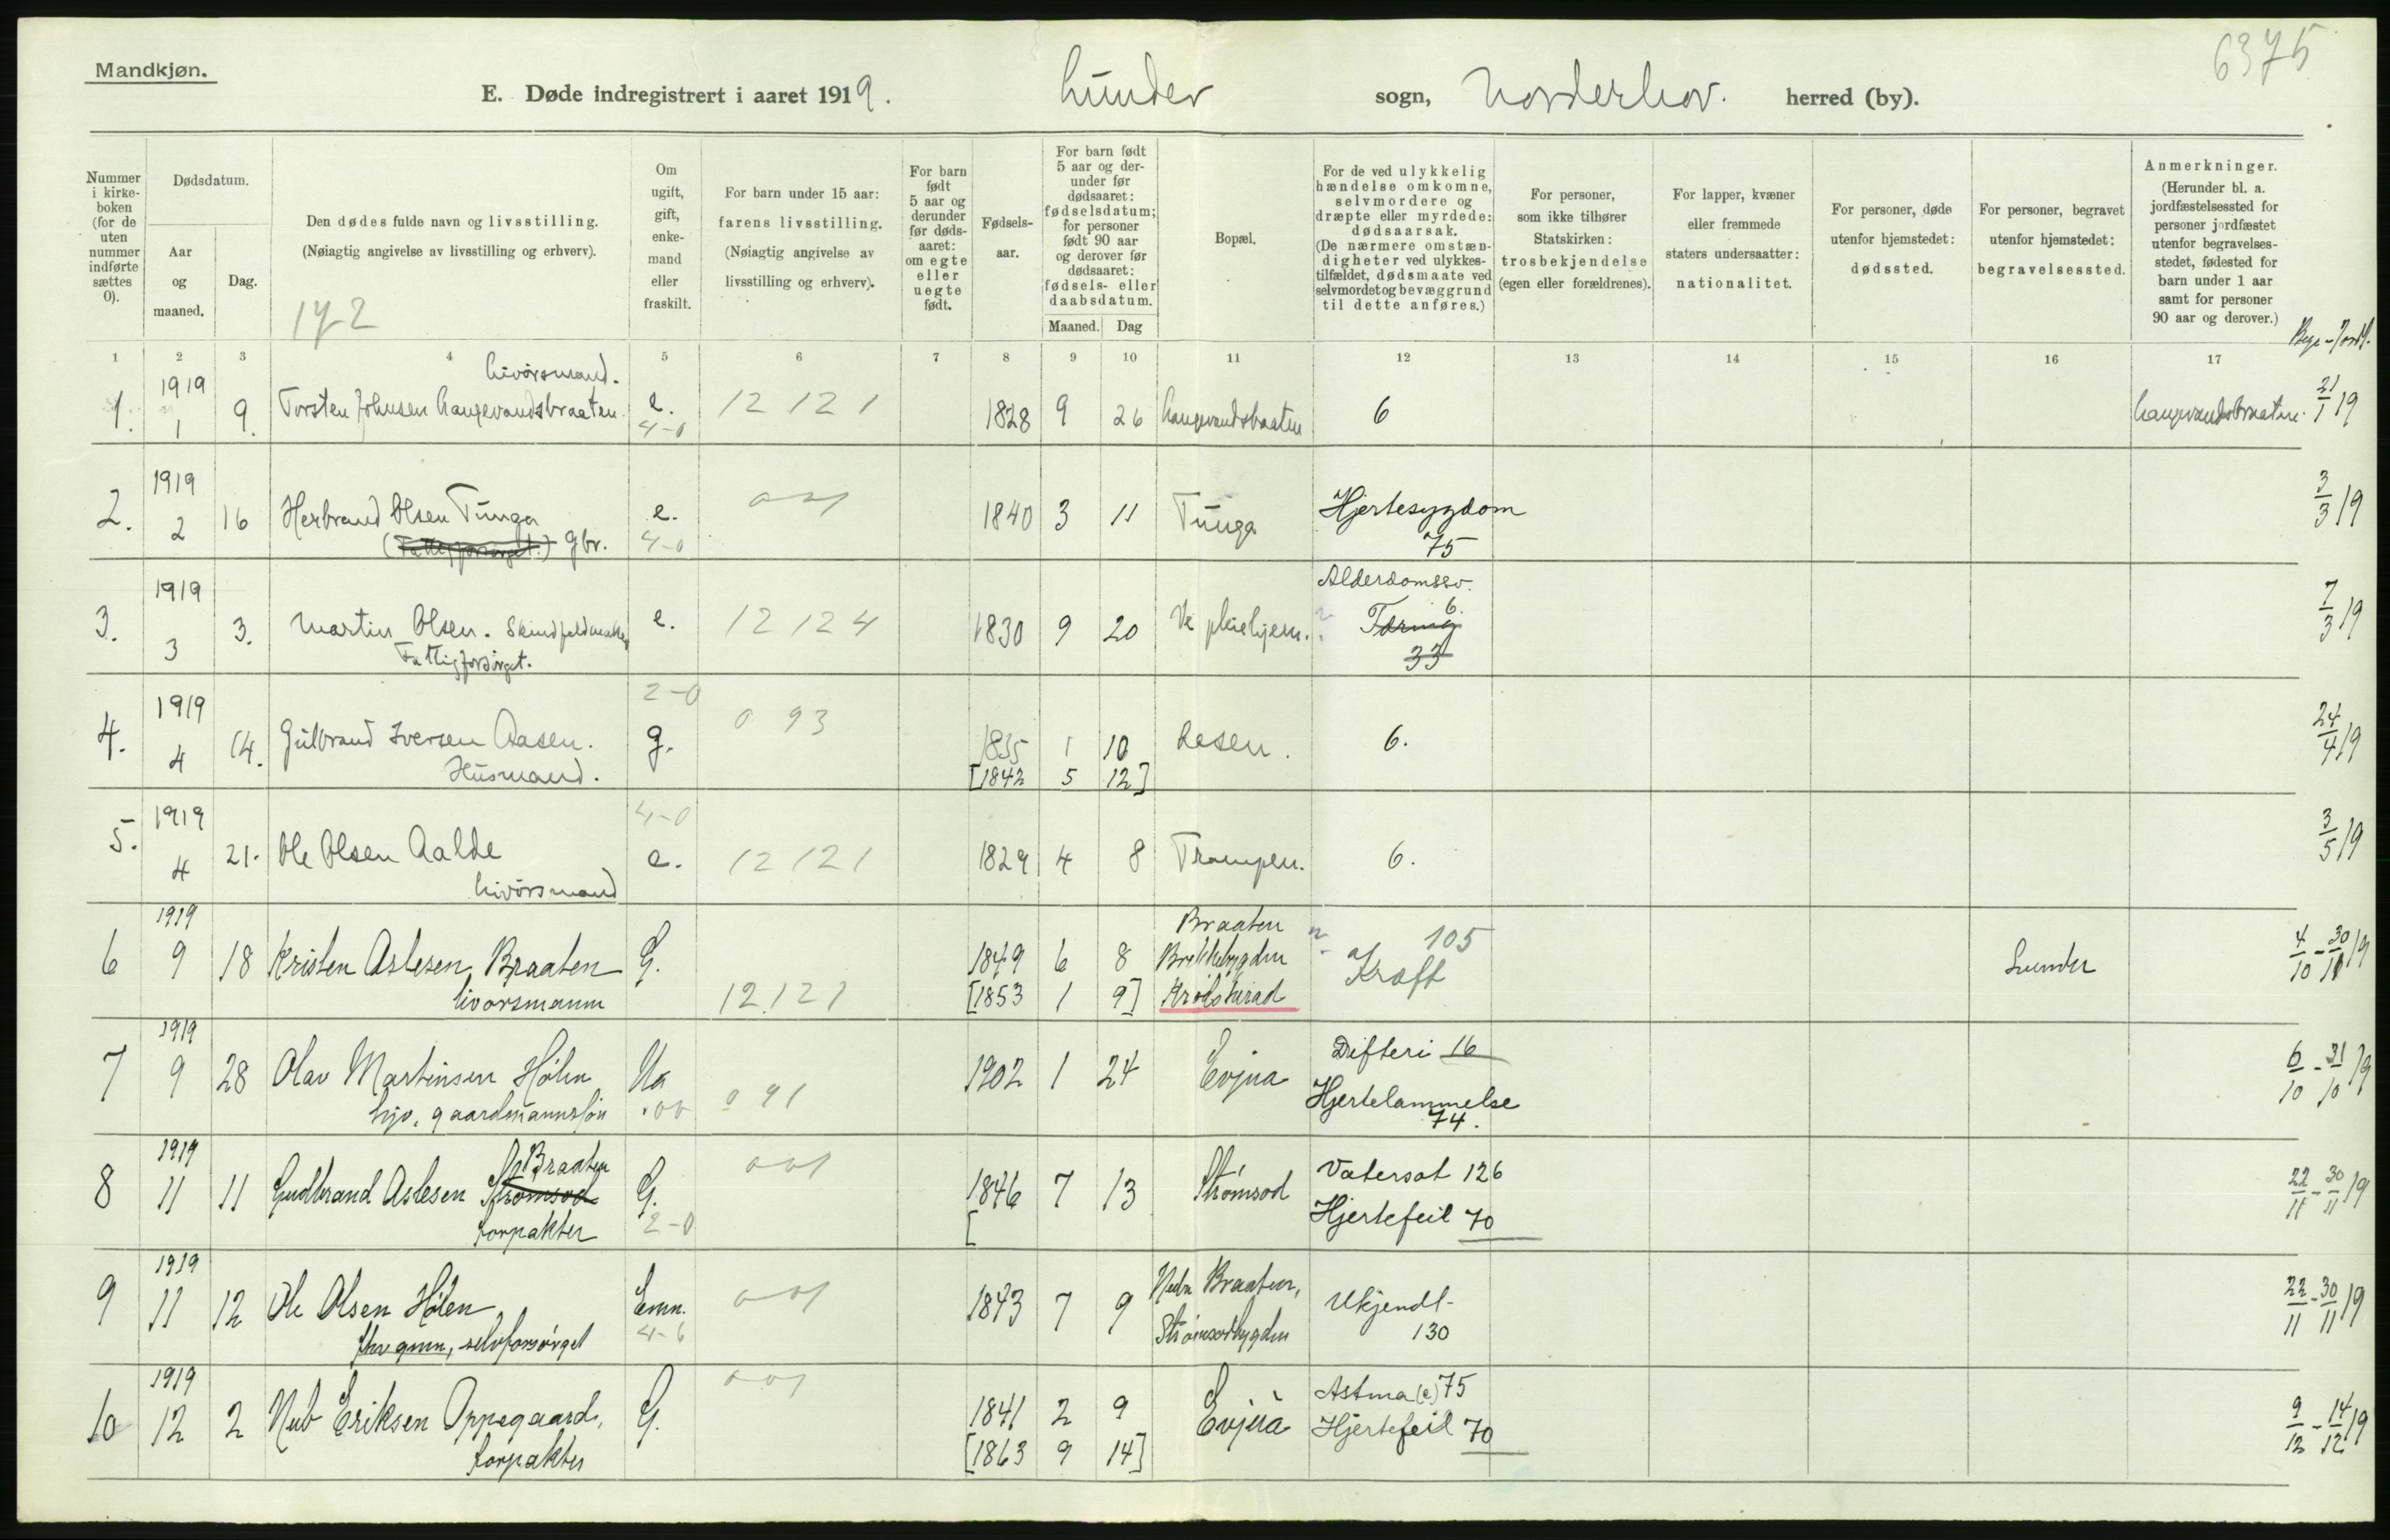 Mandkjøn.
6375
E. Døde indregistrert i aaret 1919. Lunder sogn, Norderhov. herred (by).
Nummer i kirke-boken (for de uten nummer indførte sættes 0).
Dødsdatum.
Aar og maaned.
Dag.
Den dødes fulde navn og livsstilling.
(Nøiagtig angivelse av livsstilling og erhverv).
172
Om ugift, gift, enke-mand eller fraskilt.
For barn under 15 aar: farens livsstilling.
(Nøiagtig angivelse av livsstilling og erhverv).
For barn født 5 aar og derunder før døds-aaret: om egte eller uegte født.
Fødsels-aar.
For barn født 5 aar og der-under før dødsaaret: fødselsdatum; for personer født 90 aar og derover før dødsaaret: fødsels- eller daabsdatum.
Maaned. Dag
Bopæl.
For de ved ulykkelig hændelse omkomne, selvmordere og dræpte eller myrdede: dødsaarsak.
(De nærmere omstæn-digheter ved ulykkes-tilfældet, dødsmaate ved selvmordet og bevæggrund til dette anføres.)
For personer, som ikke tilhører Statskirken: trosbekjendelse (egen eller forældrenes).
For lapper, kvæner eller fremmede staters undersaatter: nationalitet.
For personer, døde utenfor hjemstedet: dødssted.
For personer, begravet utenfor hjemstedet: begravelsessted.
Anmerkninger.
(Herunder bl. a. jordfæstelsessted for personer jordfæstet utenfor begravelses-stedet, fødested for barn under 1 aar samt for personer 90 aar og derover.)
Begr - Jordf.
1 2 3 4 5 6 7 8 9 10 11 12 13 14 15 16 17
Livørsmand.
1. 1919 1 9. Torsten Johnsen Langevandsbraaten e. 4-0 12 121 1828 9 26 Langevandsbraaten 6 Langevandsbraaten. 21/1 19
2. 1919 2 16 Herbrand Olsen Tunga e. 001 1840 3 11 Tunga Hjertesygdom 3/3 19
(Fattigforsørget.) Gbr. 4-0 75
3. 1919 3 3. Martin Olsen. Skindfeldmaker e. 12 124 1830 9 20 Ve pleiehjem. Alderdomssv. 6. Tæring 33 7/3 19
Fattigforsørget.
4. 1919 4 14. Gulbrand Iversen Aasen. 2-0 g. 0 93 1835 1 10 Aasen. 6. 24/4 19
Husmand. [1842 5 12]
5. 1919 4 21. Ole Olsen Aalde 4-0 e. 12 121 1829 4 8 Trampen. 6. 3/5 19
Livørsmand
6 1919 9 18 Kristen Aslesen Braaten G. 1849 6 8 Braaten Brekkebygden 105 Kræft Lunder 4/10 - 30/10 19
livørsmann 12.121 [1853 1 9] Krødsherad
7 1919 9 28 Olav Martinsen Hølen Ug 091 1902 1 24 Evjua Difteri 16 6/10 - 31/10 19
hjv. gaardmannssøn .00 Hjertelammelse 74.
8 1919 11 11 Gudbrand Aslesen Strømsod Braaten G. 001 1846 7 13 Strømsod Vatersot 126 22/11 - 30/11 19
forpakter 2-0 [ Hjertefeil 70
9 1919 11 12 Ole Olsen Hølen Emn. 001 1843 7 9 Nedre Braaten, Ukjendt 22/11 - 30/11 19
selvforsørget 4-6 Strømsodbygden 130
10 1919 12 2 Nub Eriksen Oppegaard, G. 001 1841 2 9 Evjua Astma (e) 75 9/12 - 14/12 19
forpakter [1863 9 14] Hjertefeil 70